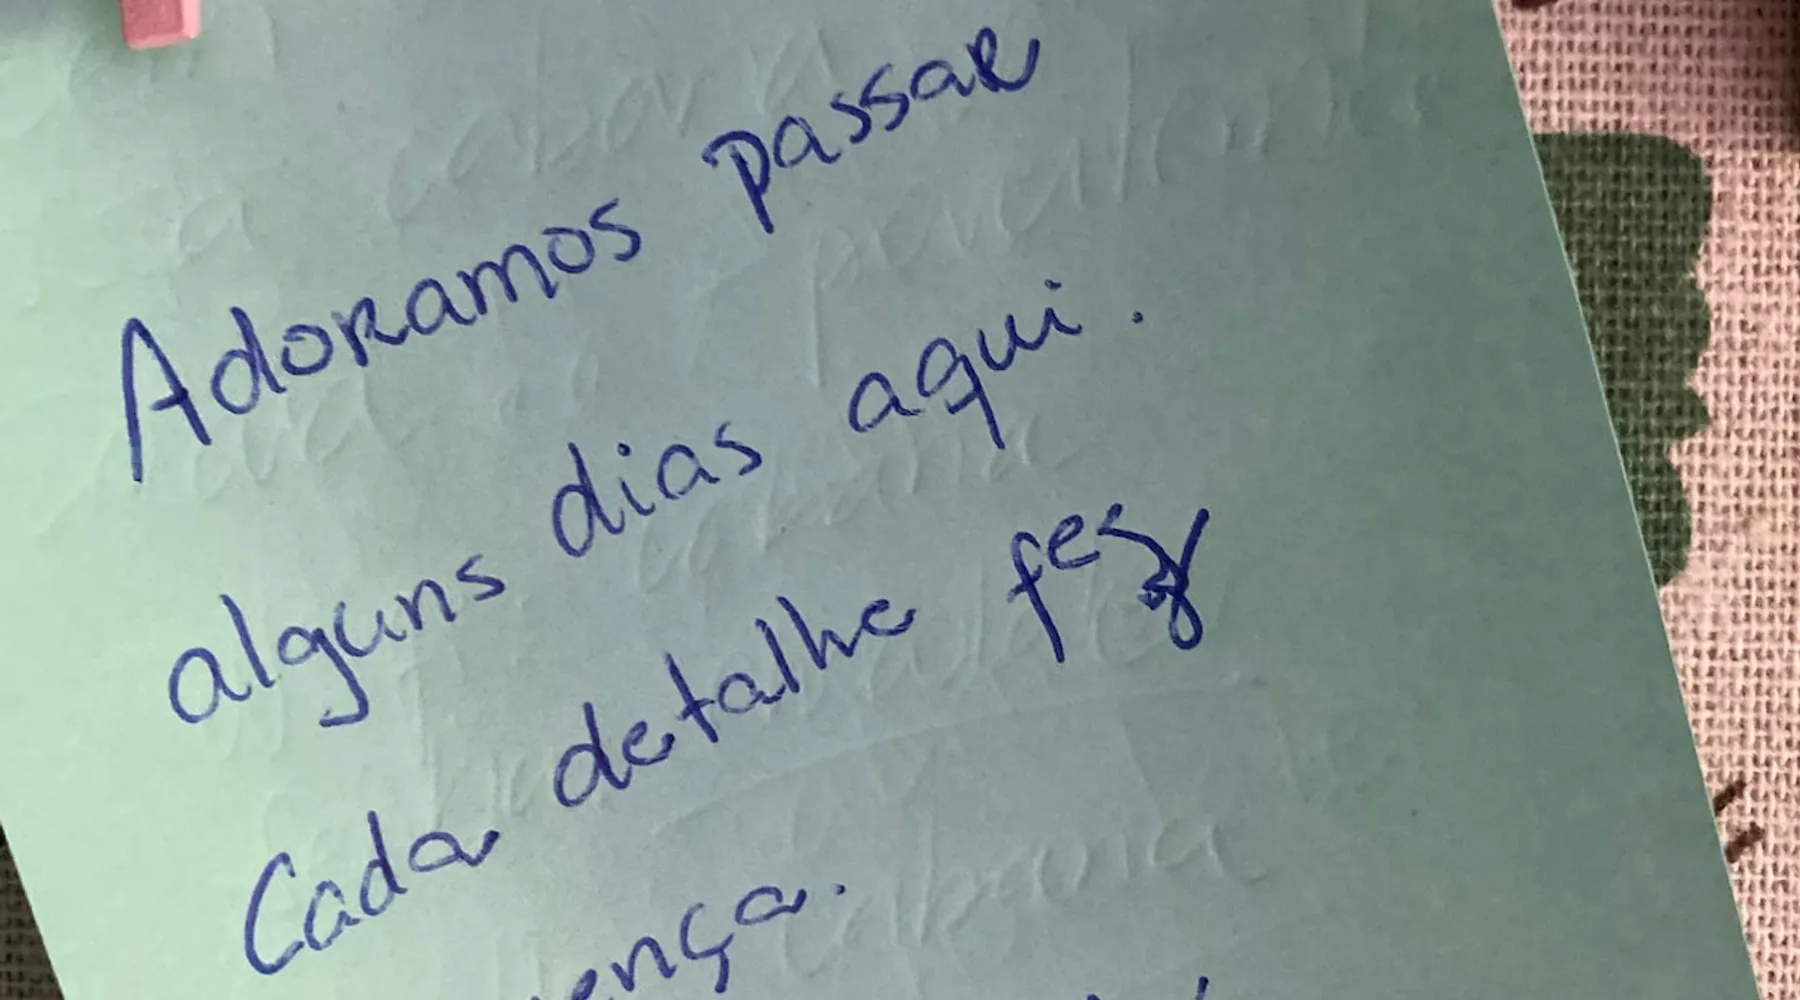 Adoramos passar
alguns dias aqui.
Cada detalhe fez